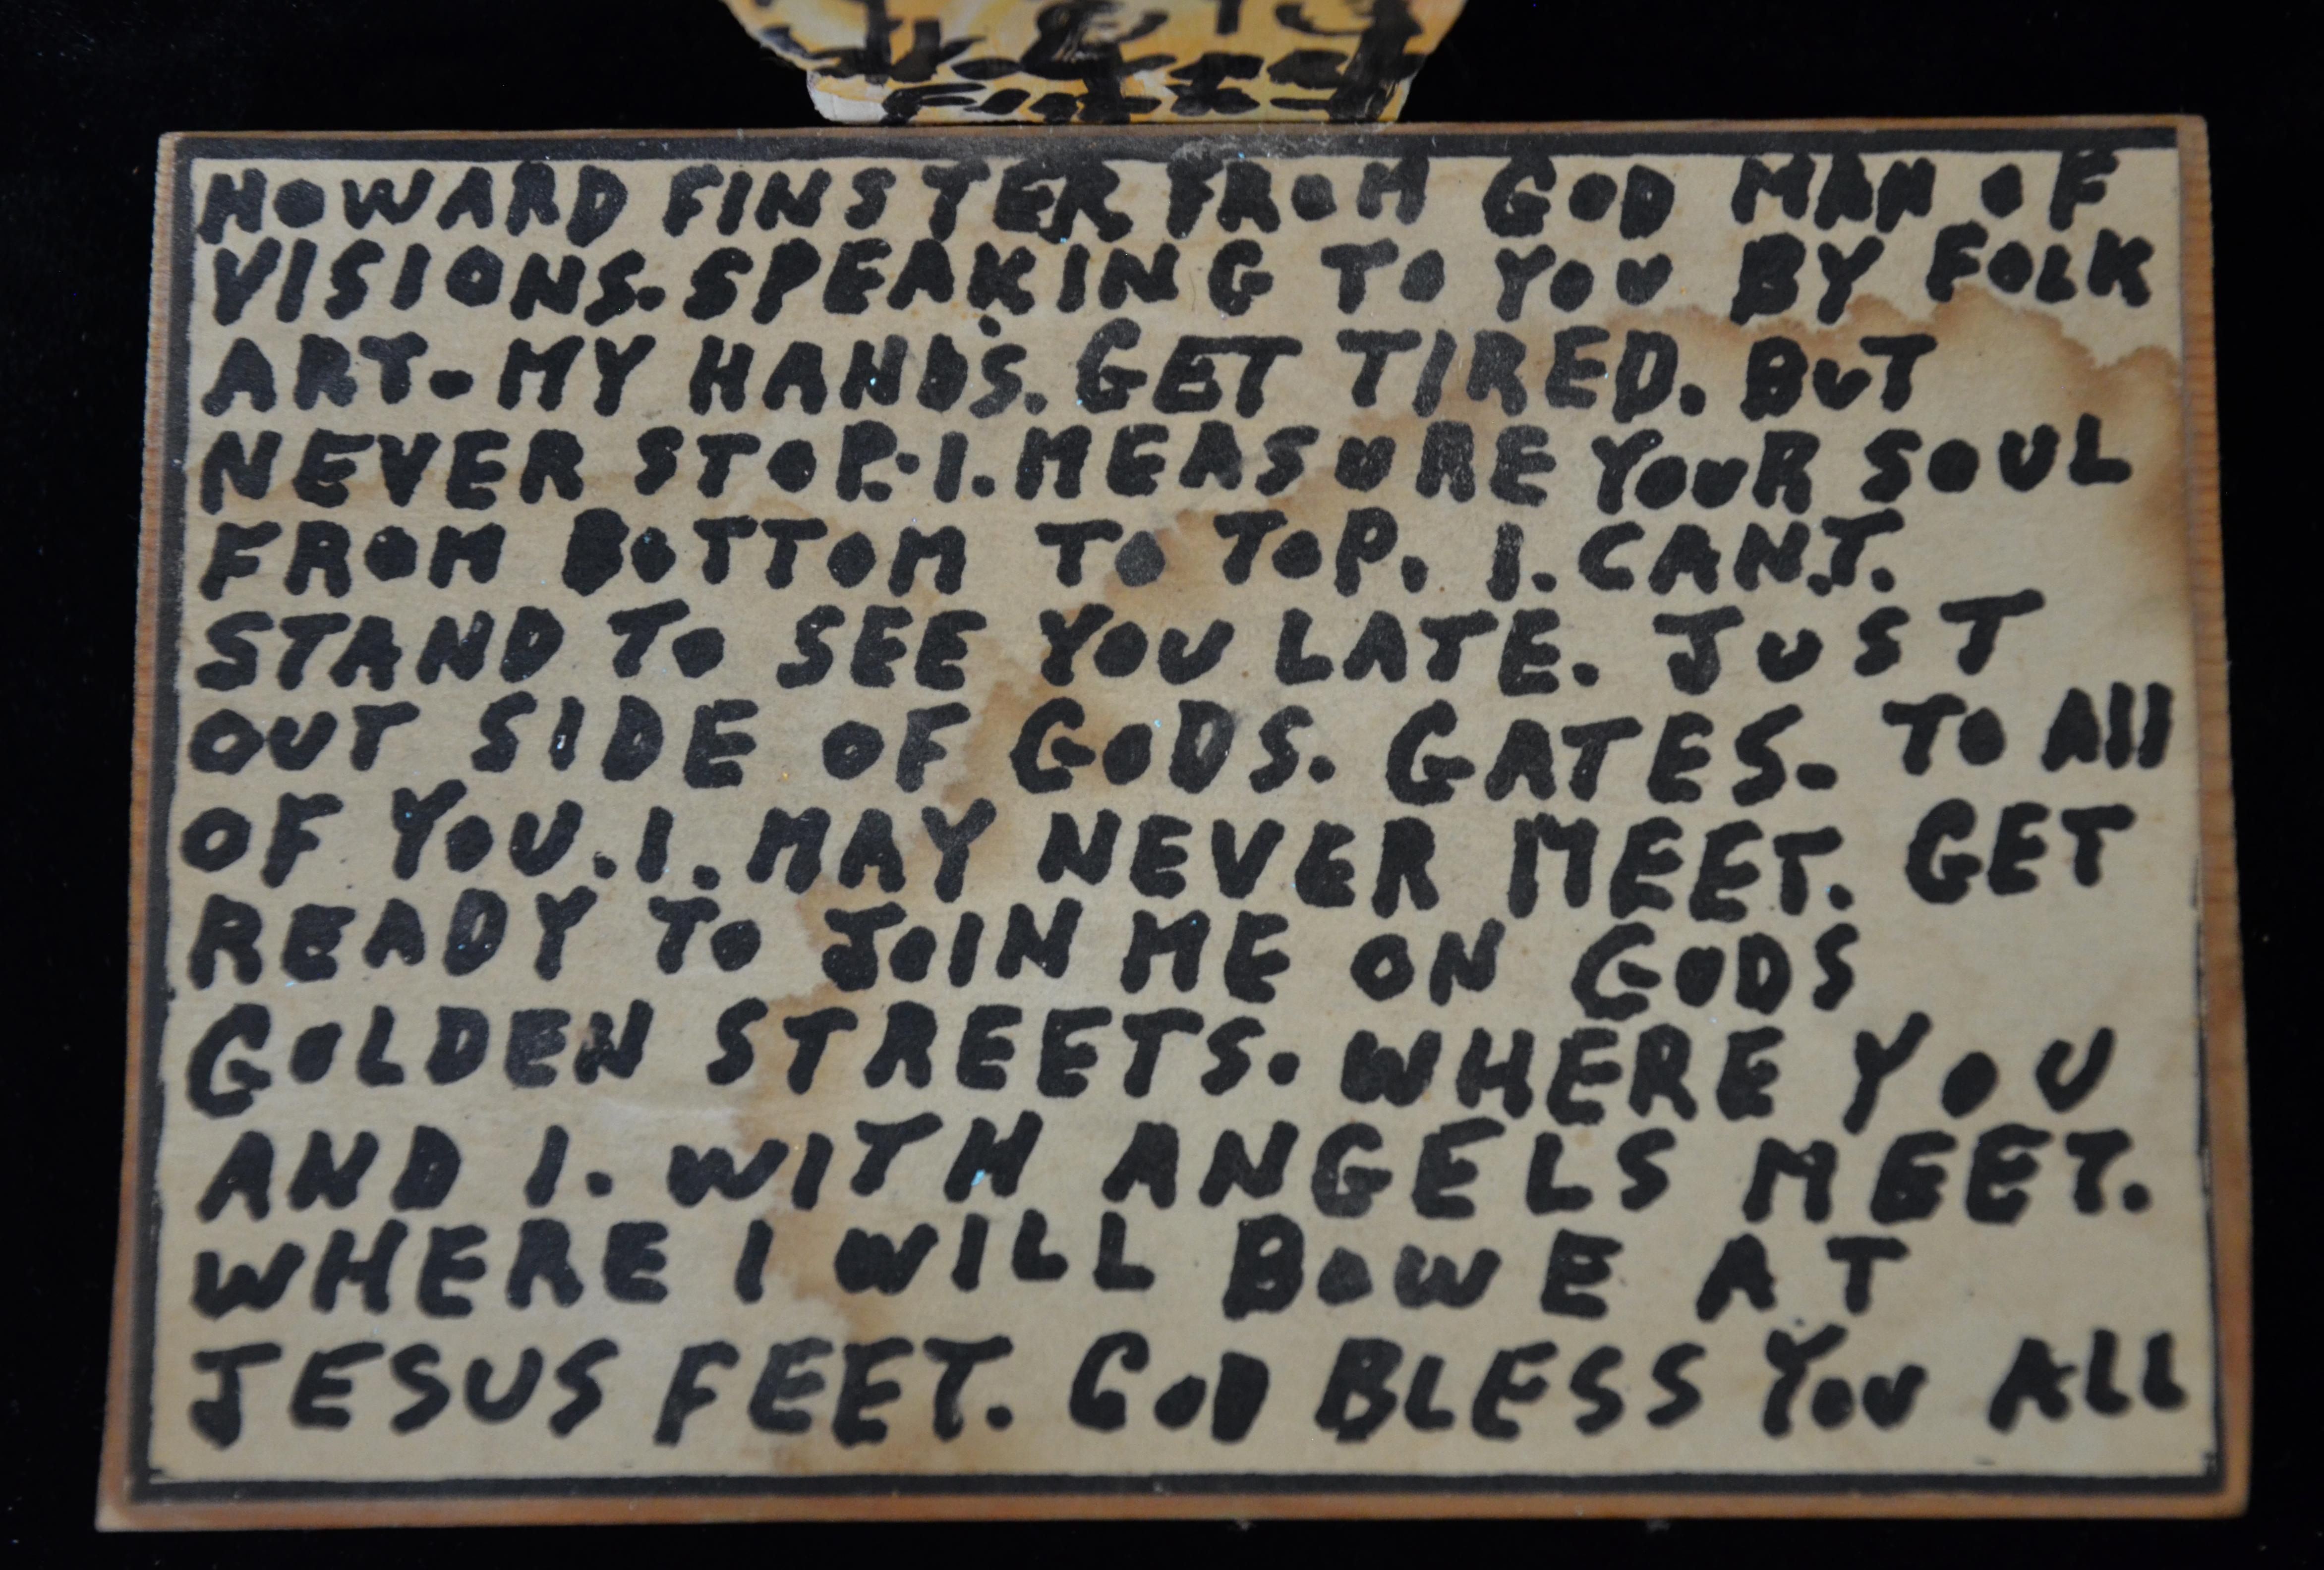 HOWARD FINSTER FROM GOD MAN OF
VISIONS. SPEAKING TO YOU BY FOLK
ART- MY HANDS. GET TIRED. BUT
NEVER STOP.-I. MEASURE YOUR SOUL
FROM BOTTOM TO TOP. I. CAN.T.
STAND TO SEE YOU LATE. JUST
OUT SIDE OF GODS. GATES- TO All
OF YOU. I. MAY NEVER MEET. GET
READY TO JOIN ME ON GODS
GOLDEN STREETS. WHERE YOU
AND I. WITH ANGELS MEET.
WHERE I WILL BOWE AT
JESUS FEET. GOD BLESS YOU ALL